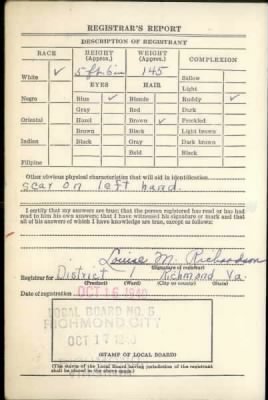 REGISTRAR'S REPORT
DESCRIPTION OF REGISTRANT
RACE HEIGHT (Approx.) WEIGHT (Approx.) COMPLEXION
White ✓ 5 ft. 6 in 145 Sallow
EYES HAIR Light
Negro Blue ✓ Blonde Ruddy ✓
Gray Red Dark
Oriental Hazel Brown ✓ Freckled
Brown Black Light brown
Indian Black Gray Dark brown
Bald Black
Filipino
Other obvious physical characteristics that will aid in identification
scar on left hand.
I certify that my answers are true; that the person registered has read or has had
read to him his own answers; that I have witnessed his signature or mark and that
all of his answers of which I have knowledge are true, except as follows:
Louise M. Richardson
(Signature of registrar)
Registrar for District 1 Richmond Va.
(Precinct) (Ward) (City or county) (State)
Date of registration OCT 16 1940
LOCAL BOARD NO. 5
RICHMOND CITY
OCT 17 1940
(STAMP OF LOCAL BOARD)
(The stamp of the Local Board having jurisdiction of the registrant
shall be placed in the above space.)